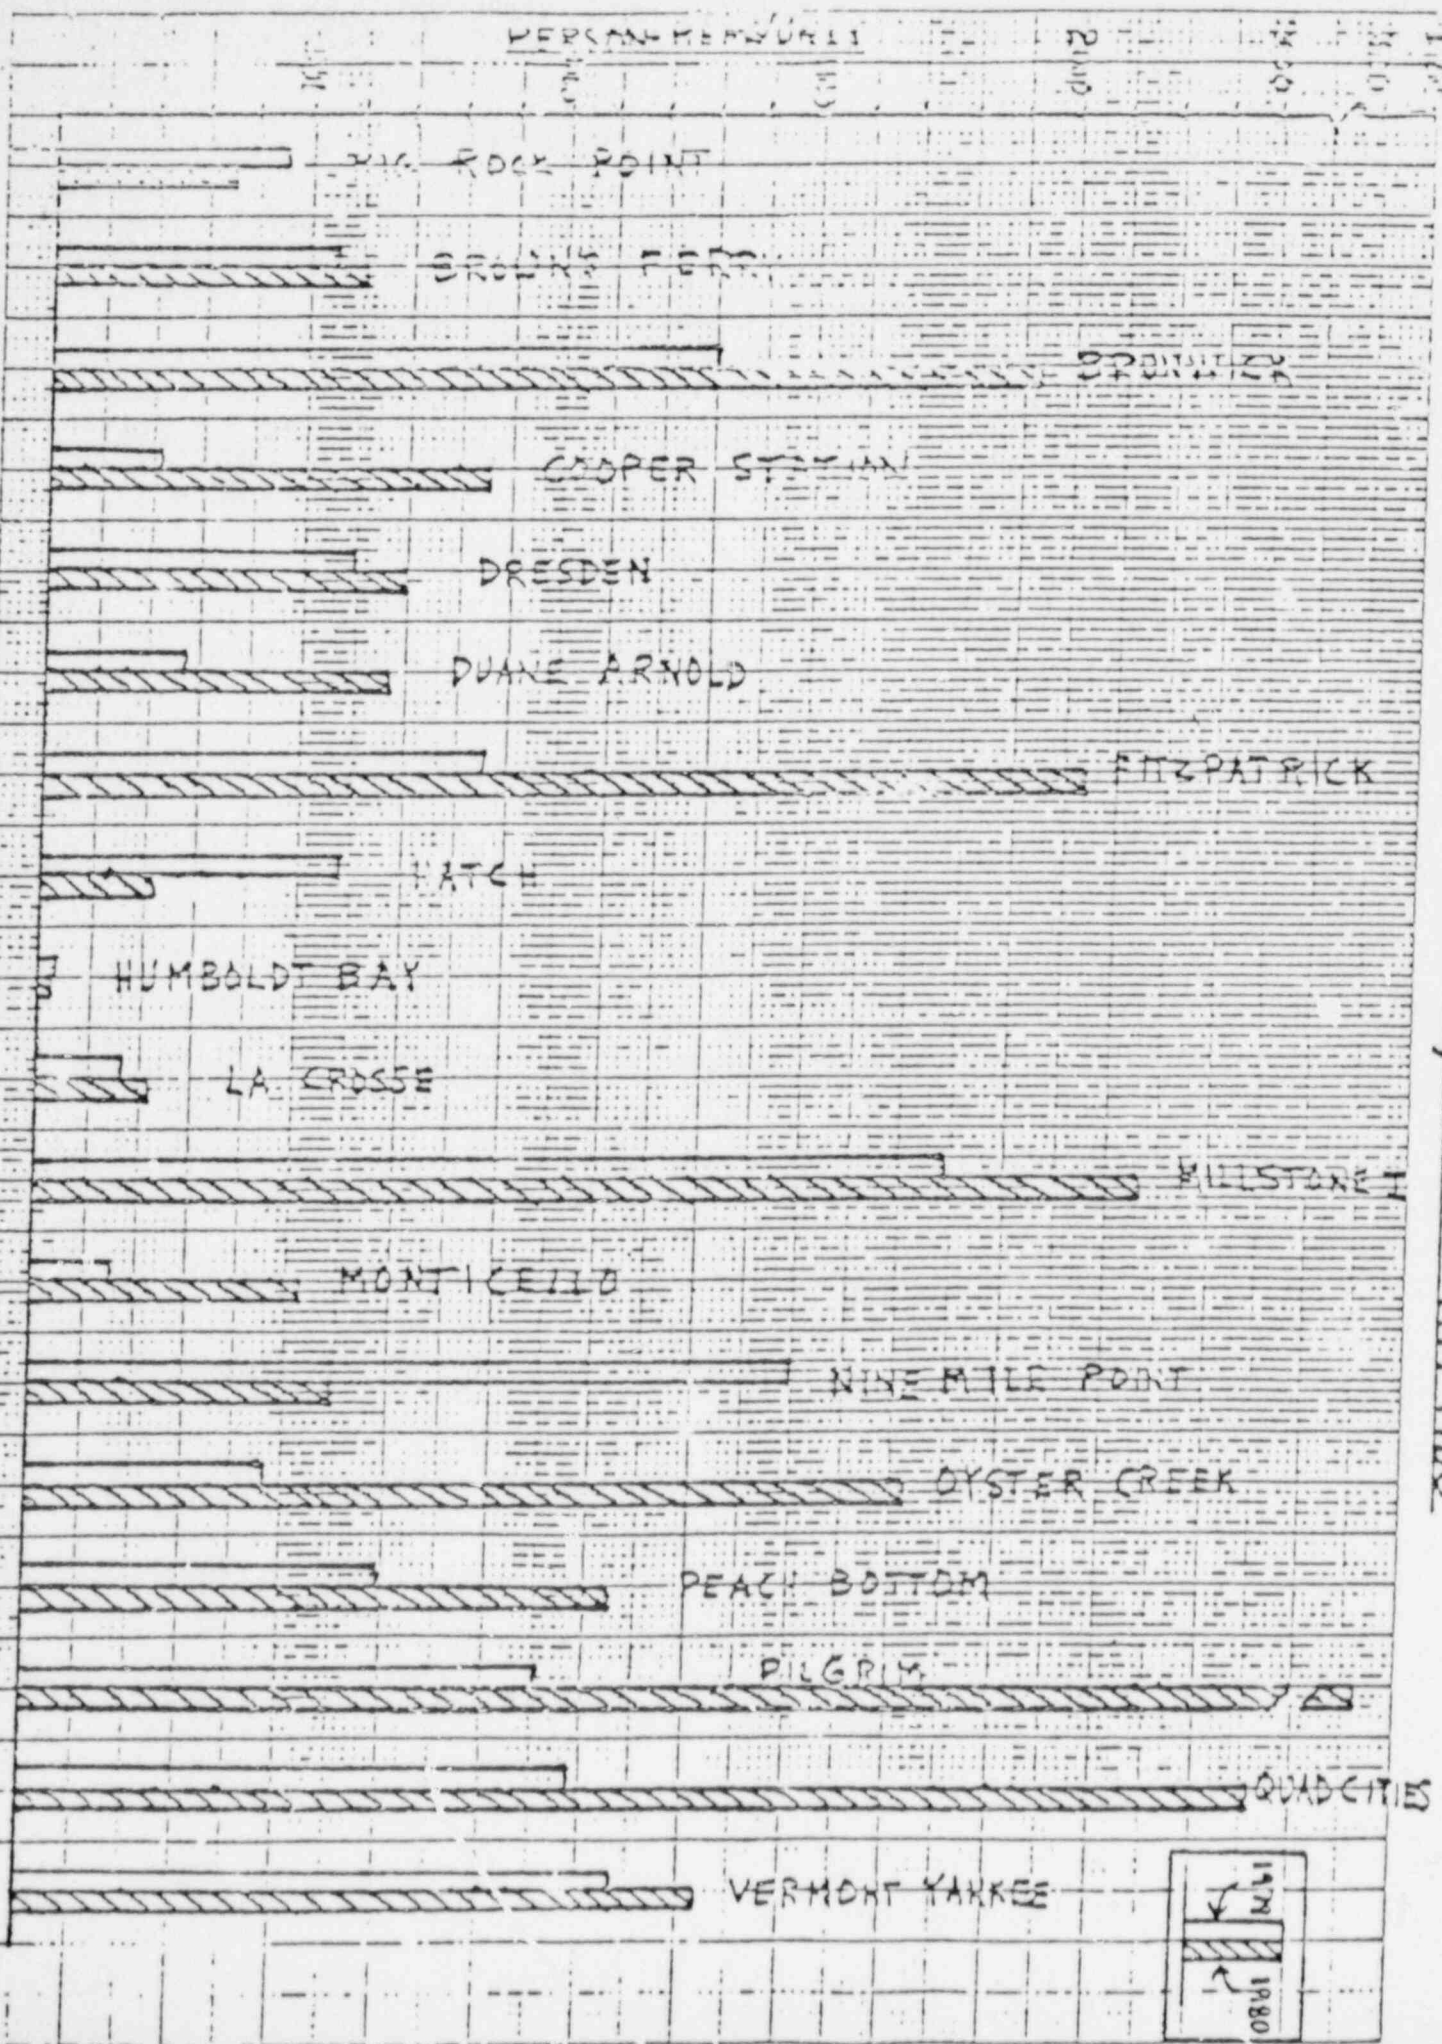 BIG ROCK POINT
BROWNS FERRY
BRUNSWICK
COOPER STATION
DRESDEN
DUANE ARNOLD
FITZPATRICK
HATCH
HUMBOLDT BAY
LA CROSSE
MILLSTONE I
MONTICELLO
NINE MILE POINT
OYSTER CREEK
PEACH BOTTOM
PILGRIM
QUADCITIES
VERMONT YANKEE
1980